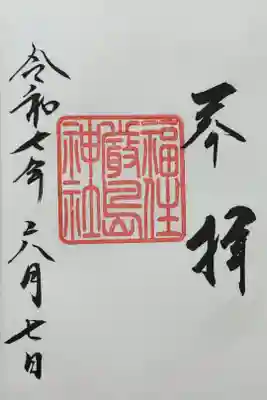 奉拝
福住
嚴島
神社
令和七年六月七日